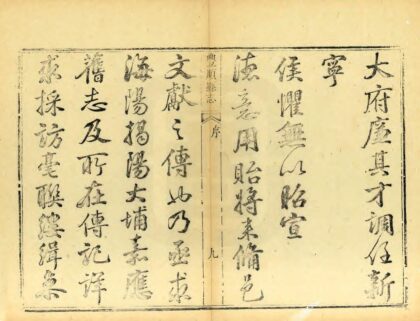 大府廉其才調任新
寧
侯懼無以昭宣
德意用貽將來備邑
豐順縣志
序
九
文獻之傳也乃亟求
海陽揭陽大埔嘉應
舊志及所在傳記詳
求採訪毫聯縷緝